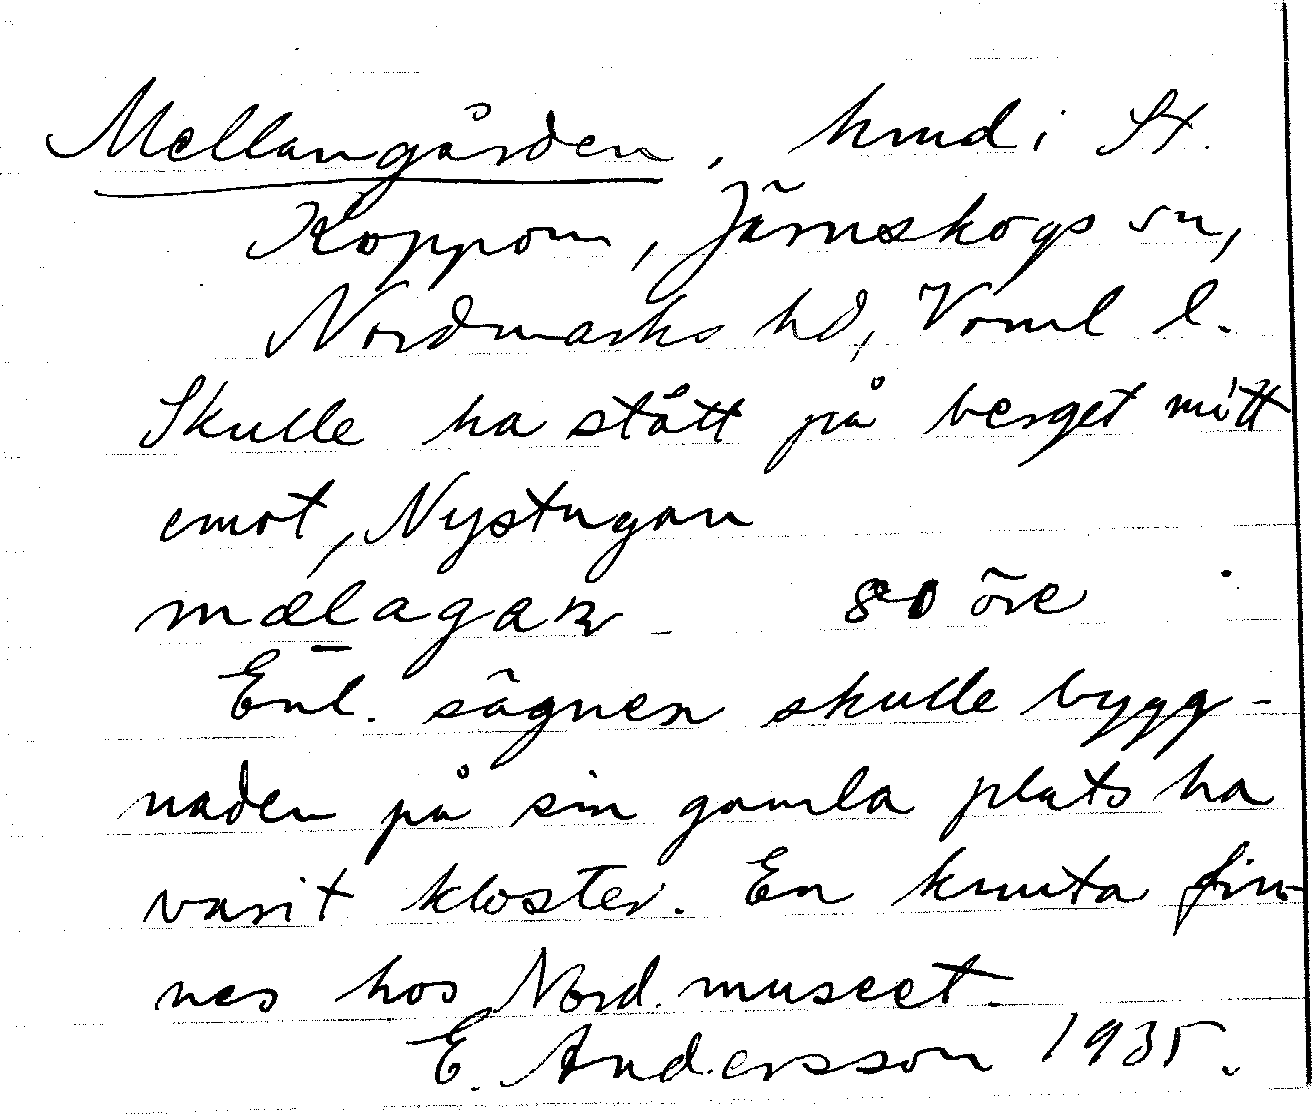 Mellangården, hmd i St.
Koppom, Järnskogs sn,
Nordmarks hd, Vorml l.
Skulle ha stått på berget mitt
emot, Nystugan
mælagaɴ 80 öre
Enl. sägnen skulle bygg-
naden på sin gamla plats ha
varit kloster. En knuta fin-
nes hos Nord. museet.
E. Andersson 1935.